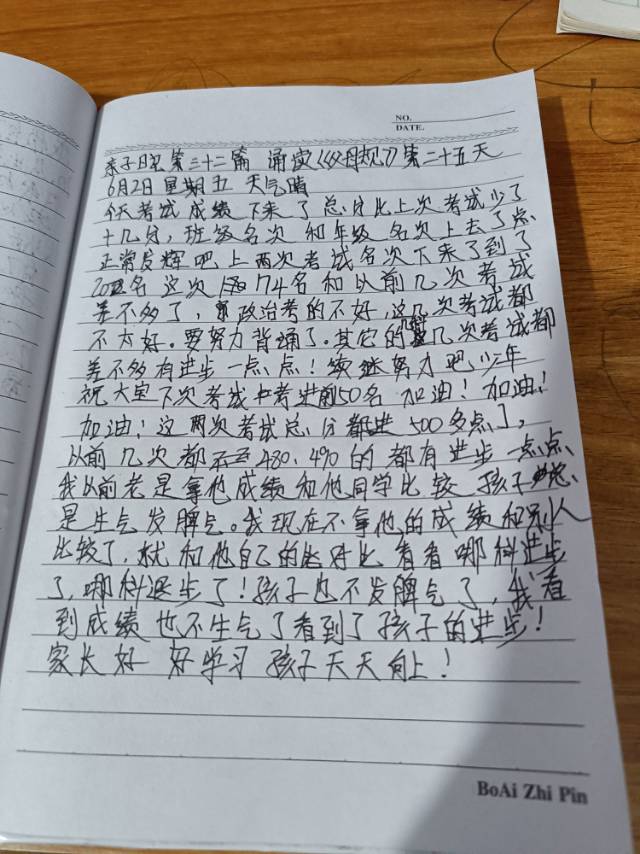 NO.
DATE.
亲子日记第三十二篇 诵读《父母规》第二十五天
6月2日 星期五 天气晴
今天考试成绩下来了总分比上次考试少了
十几分，班级名次和年级名次上去了点
正常发辉吧上两次考试名次下来了到了
20名 这次 74名和以前几次考试
差不多了，政治考的不好，这几次考试都
不太好。要努力背诵了。其它的几次考试都
差不多有进步一点点！继续努力吧少年
祝大宝下次考试中考进前50名 加油！加油！
加油！这两次考试总分都进500多点了，
以前几次都是480、490的都有进步一点点、
我以前老是拿他成绩和他同学比较 孩子总
是生气发脾气。我现在不拿他的成绩和别人
比较了，就和他自己的对比 看看哪科进步
了，哪科退步了！孩子也不发脾气了，我看
到成绩也不生气了看到了孩子的进步！
家长好好学习 孩子天天向上！
BoAi Zhi Pin